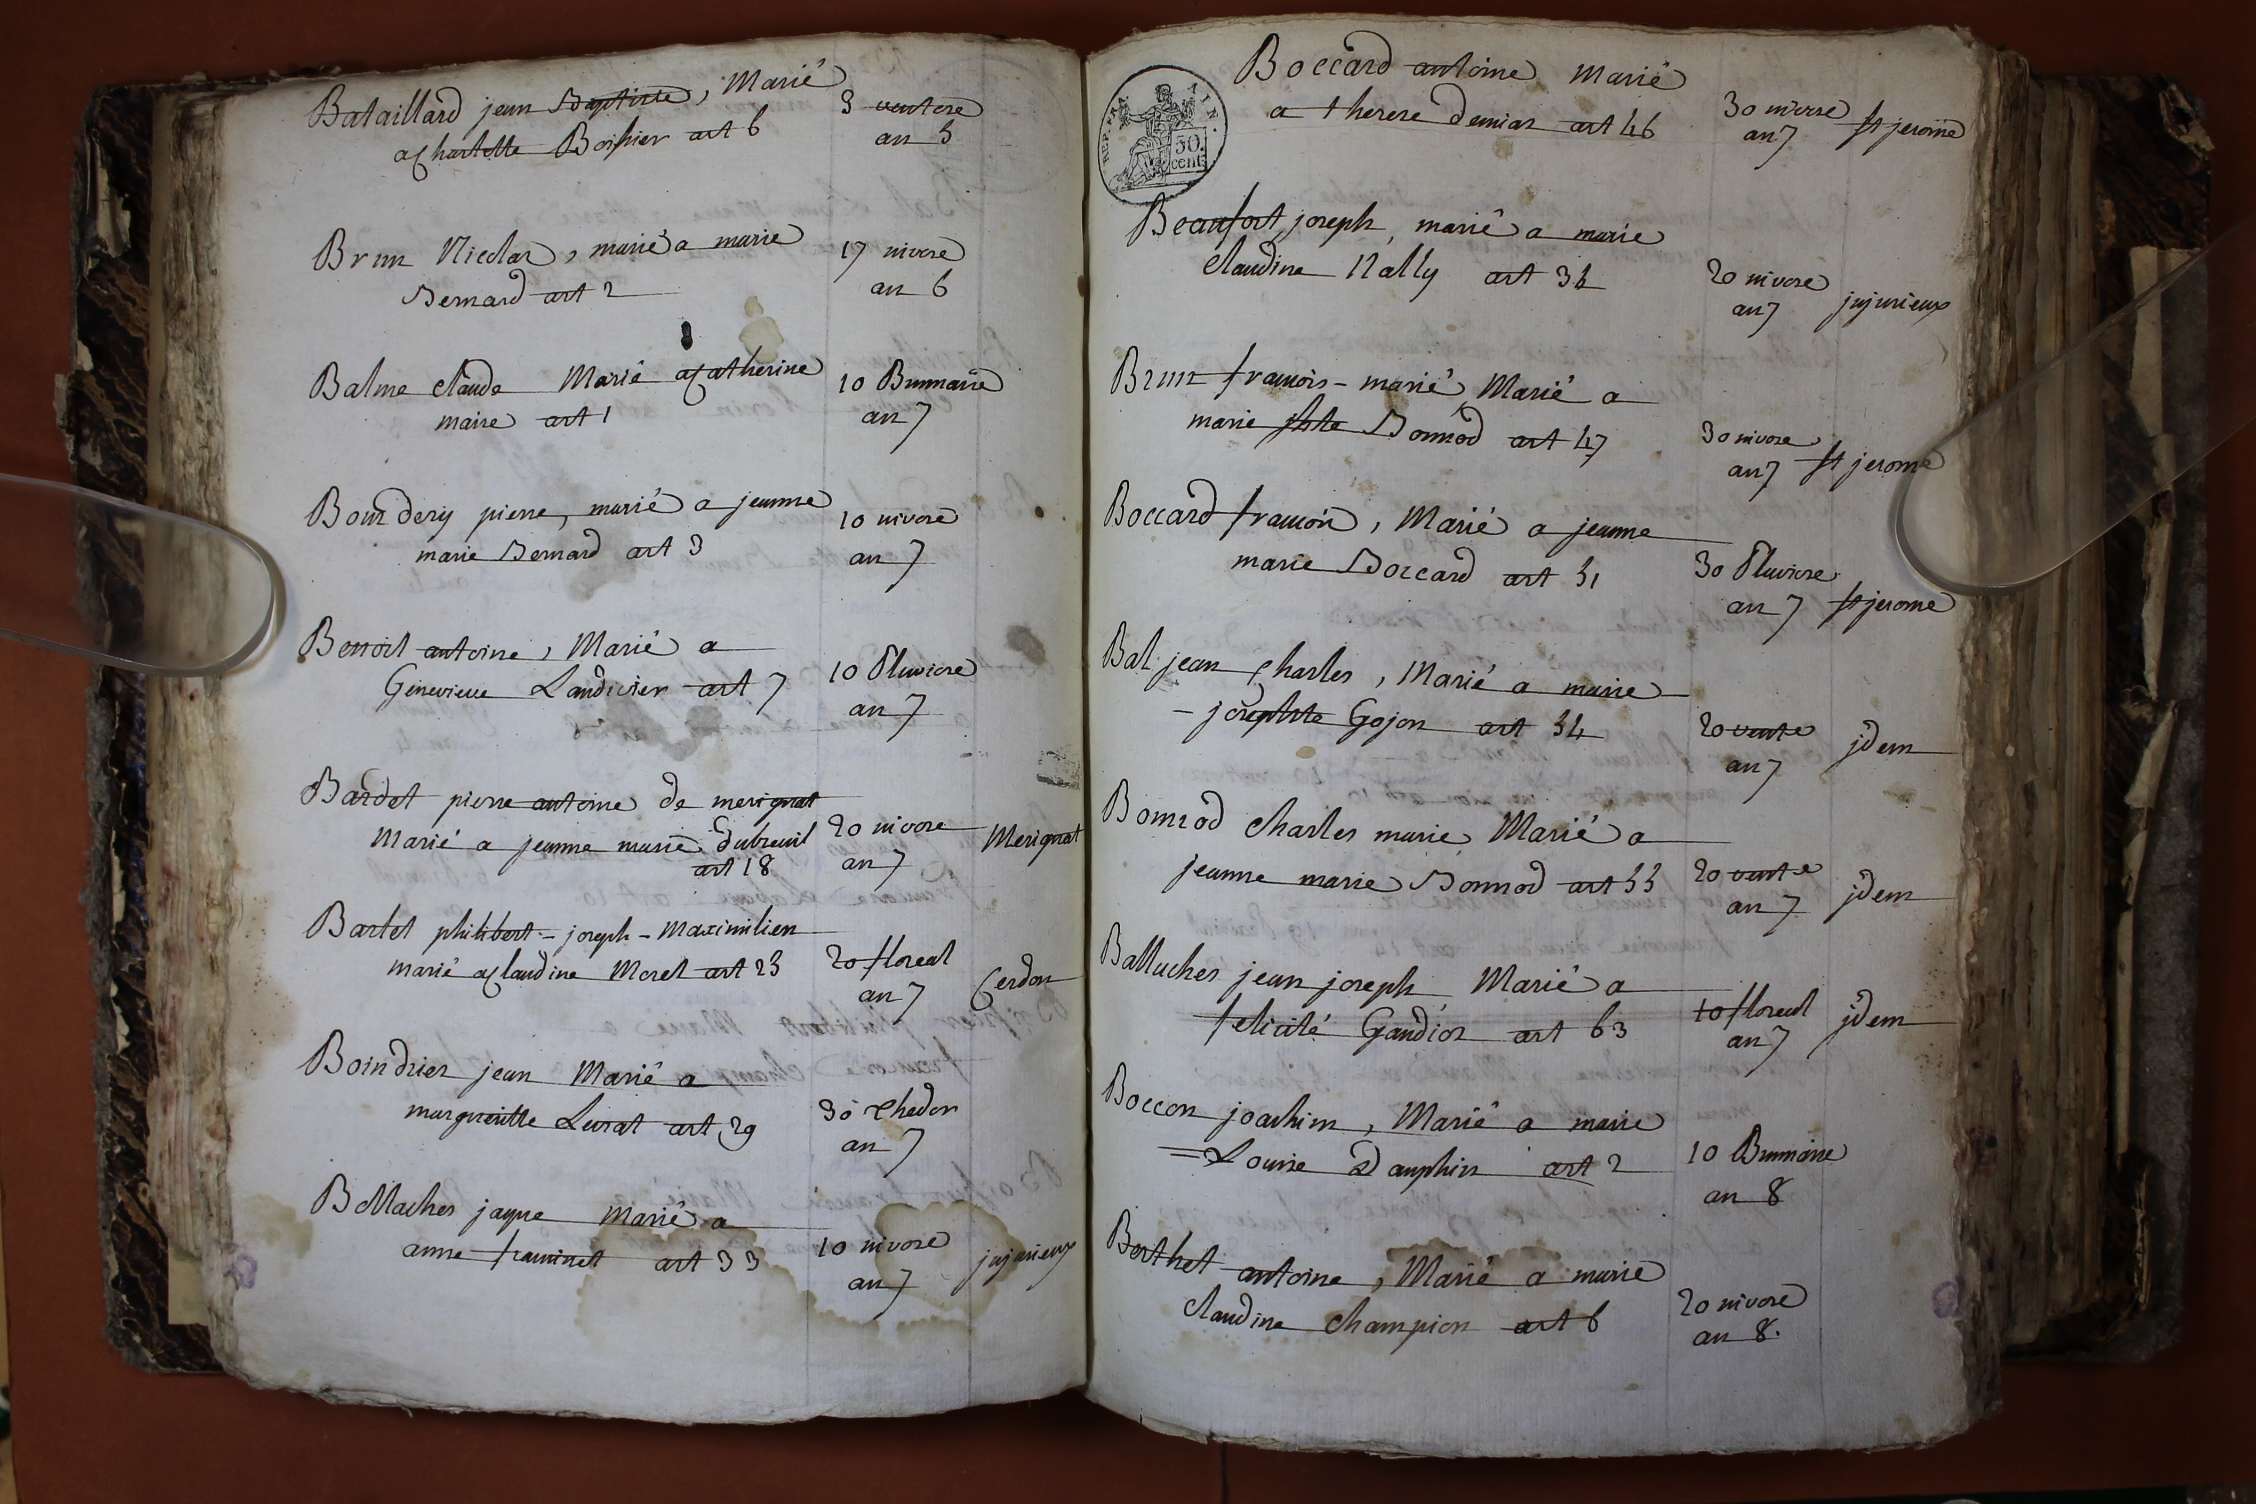 Bataillard jean Baptiste, Marié
a Charlotte Boissier art 6
3 ventose
an 5
Brun Nicolas, marié a marie
Bernard art 2
17 nivose
an 6
Balme claude Marié a Catherine
maire art 1
10 Brumaire
an 7
Bourdery pierre, marié a jeanne
marie Bernard art 3
10 nivose
an 7
Benoit antoine, Marié a
Genevieve Landivier art 7
10 Pluviose
an 7
Bardet pierre antoine de merignat
Marié a jeanne marie dubreuil
art 18
20 nivose
an 7
Merignat
Bartet philibert - joseph - Maximilien
marié a Claudine Morel art 23
20 floreal
an 7
Cerdon
Boindrier jean Marié a
margueritte Lurat art 29
30 thedor
an 7
Bellaches jaque Marié a
anne franinet art 33
10 nivose
an 7
jujurieux
REP. FRA. AIN.
50.
cent.
Boccard antoine Marié
a therese demias art 46
30 nivose
an 7
st jerome
Beaufort joseph, marié a marie
Claudine Nally art 36
20 nivose
an 7
jujurieux
Brun francois - marié Marié a
marie Bonnod art 47
30 nivose
an 7
st jerome
Boccard francois, Marié a jeanne
marie Boccard art 51
30 Pluviose
an 7
st jerome
Bal jean Charles, Marié a marie
- josephte Gojon art 54
20 vente
an 7
jdem
Bonnod Charles marie Marié a
jeanne marie Bonnod art 55
20 vente
an 7
jdem
Balluches jean joseph Marié a
felicité Gaudioz art 63
10 floreal
an 7
jdem
Boccon joachim, Marié a marie
= Louise Dauphin art 2
10 Brumaire
an 8
Berthet antoine, Marié a marie
claudine Champion art 6
20 nivose
an 8.